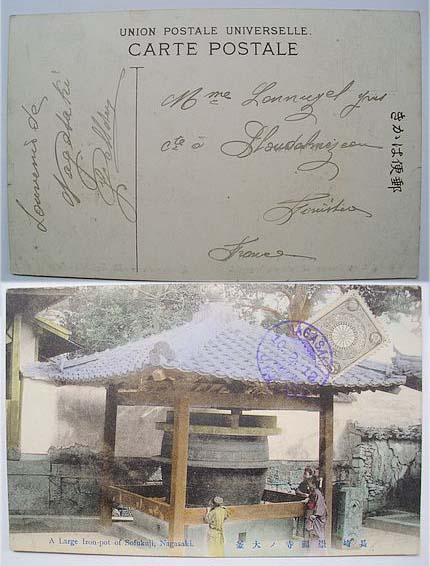 UNION POSTALE UNIVERSELLE.
CARTE POSTALE
Souvenir de
Nagasaki
Mme
cte à Ploudalmézeau
Finistère
France
きかは便郵
NAGASAKI
A Large Iron-pot of Sofukuji, Nagasaki.
長崎崇福寺ノ大釜